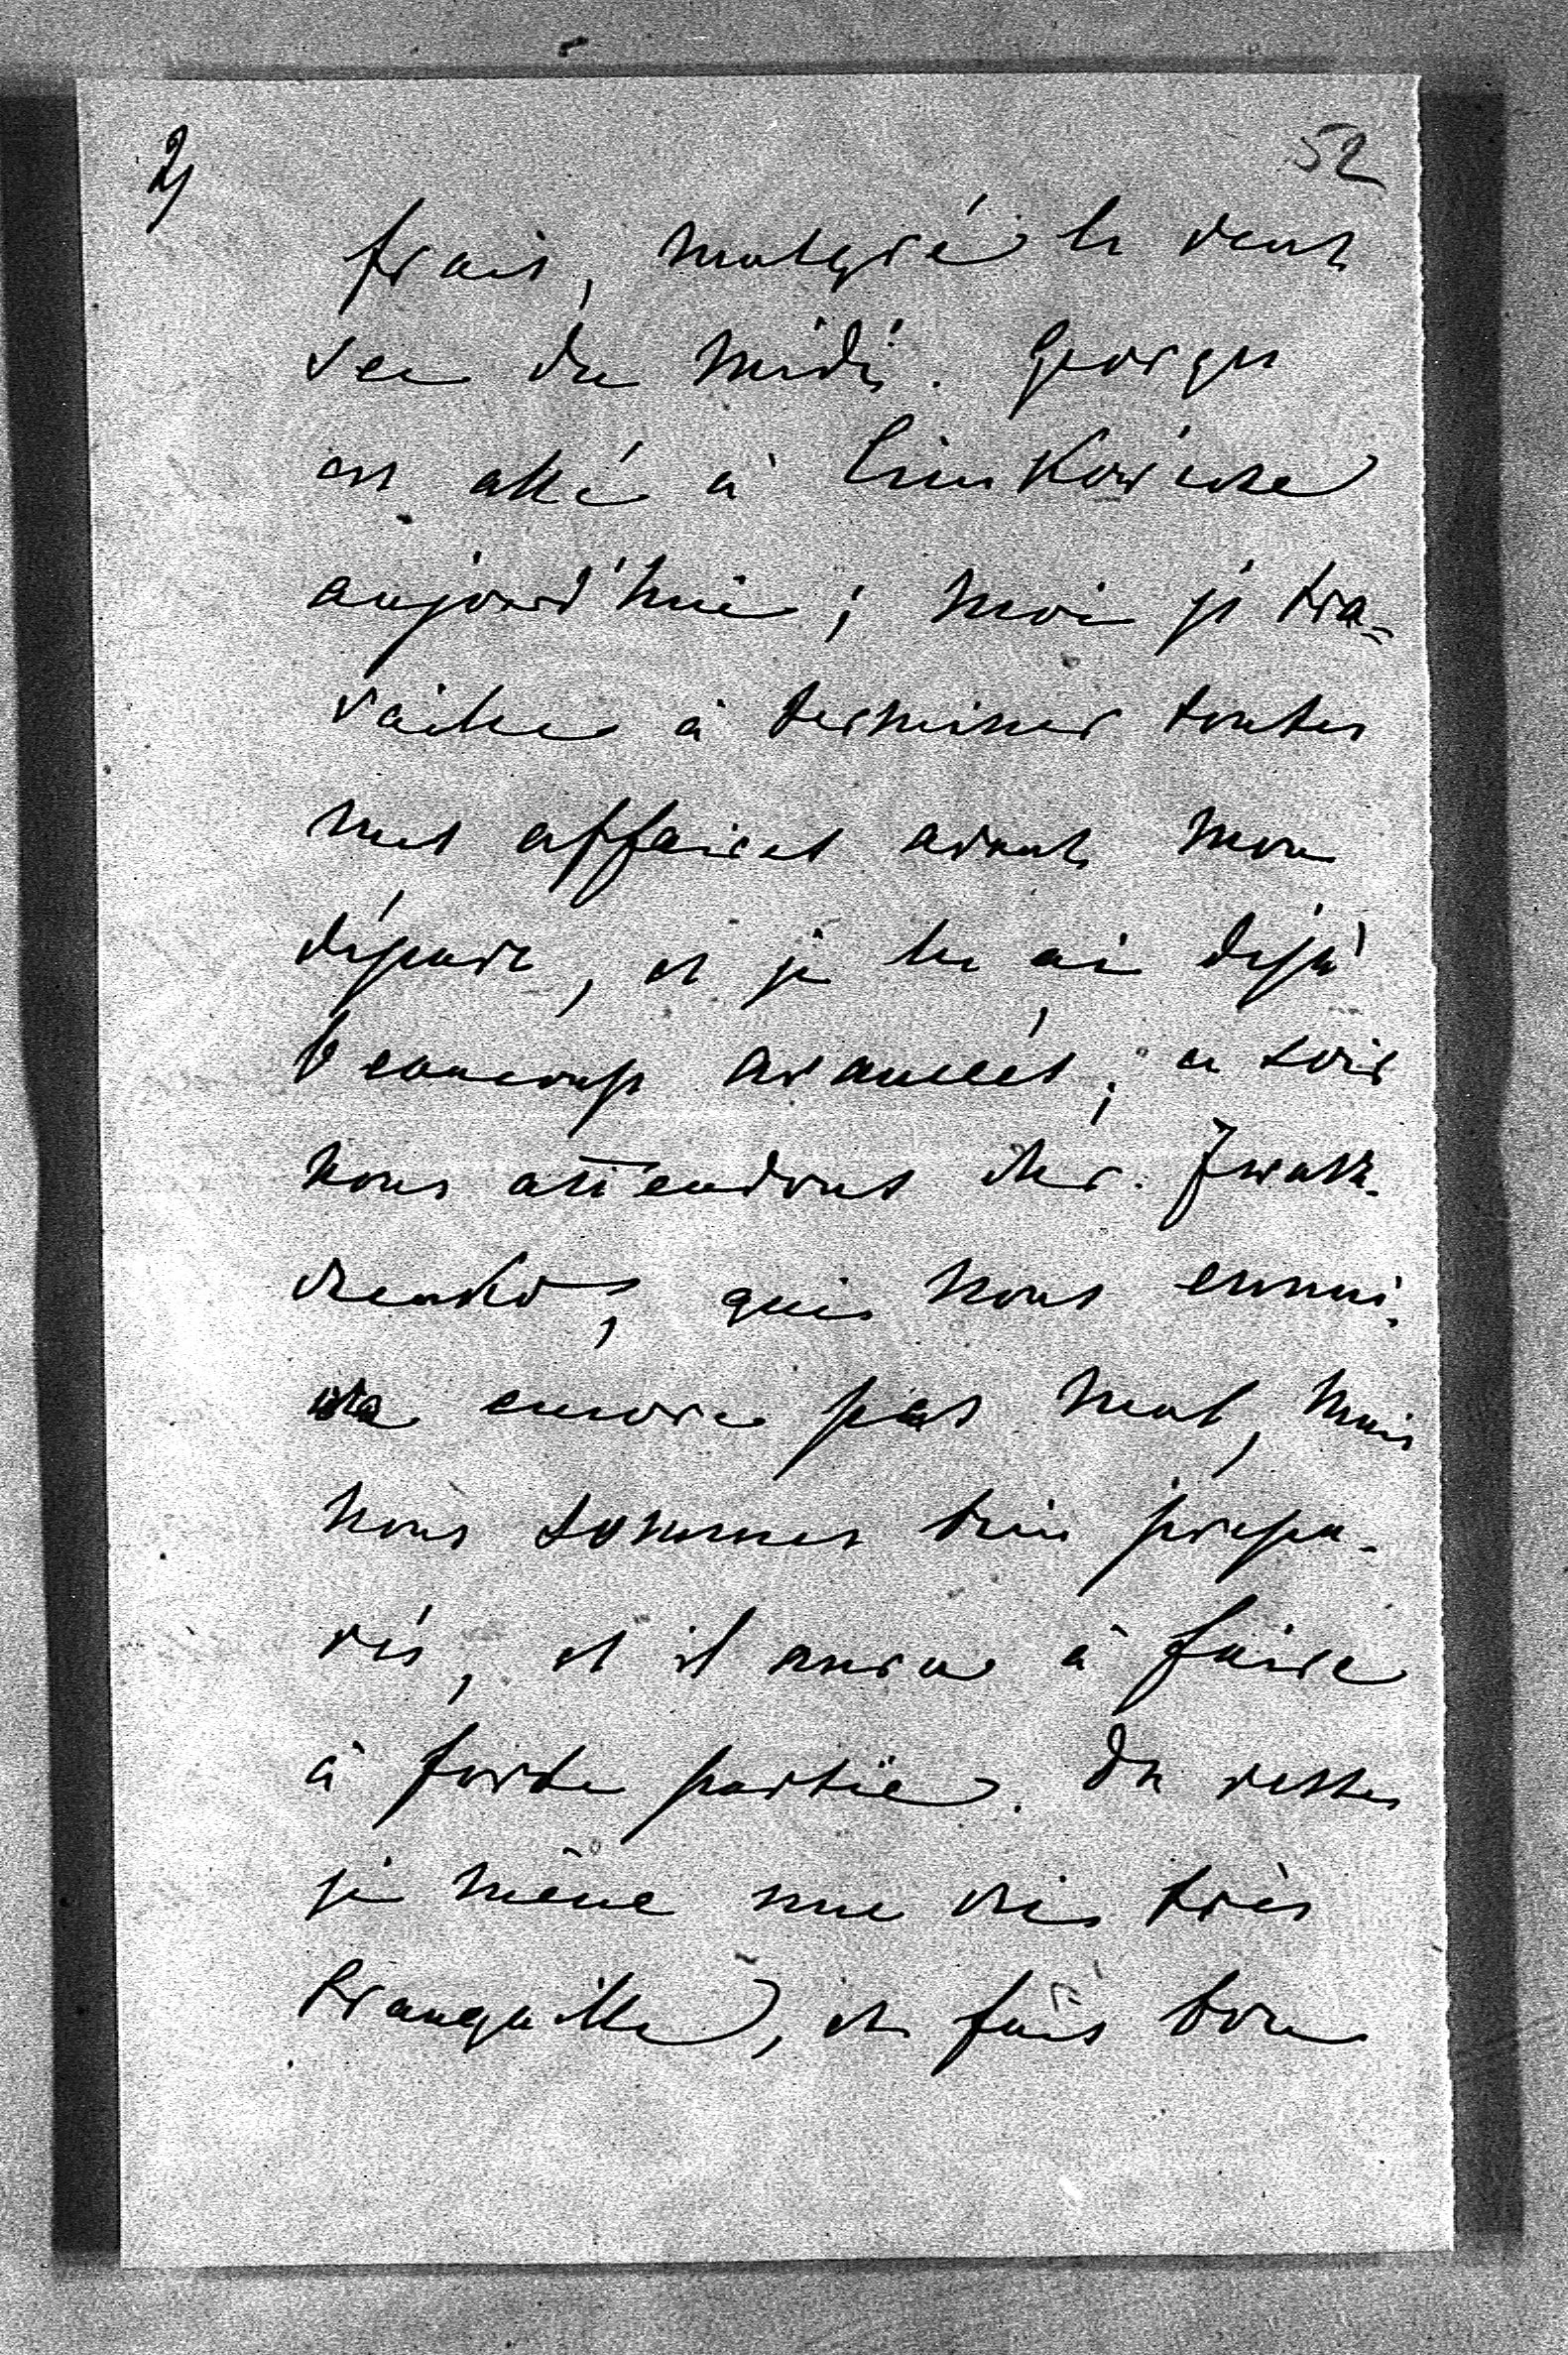 2) 52
frais, malgré le vent
sec du midi. Georges
est allé à
aujourd'hui; moi je tra-
vaille à terminer toutes
mes affaires avant mon
départ, et je les ai déjà
beaucoup avancées; ce soir
nous attendons Mr.
qui nous ennui-
era encore pas mal, mais
nous sommes bien prépa-
rés, et il aura à faire
à forte partie. Du reste
je mène une vie très
tranquille, et fais bon